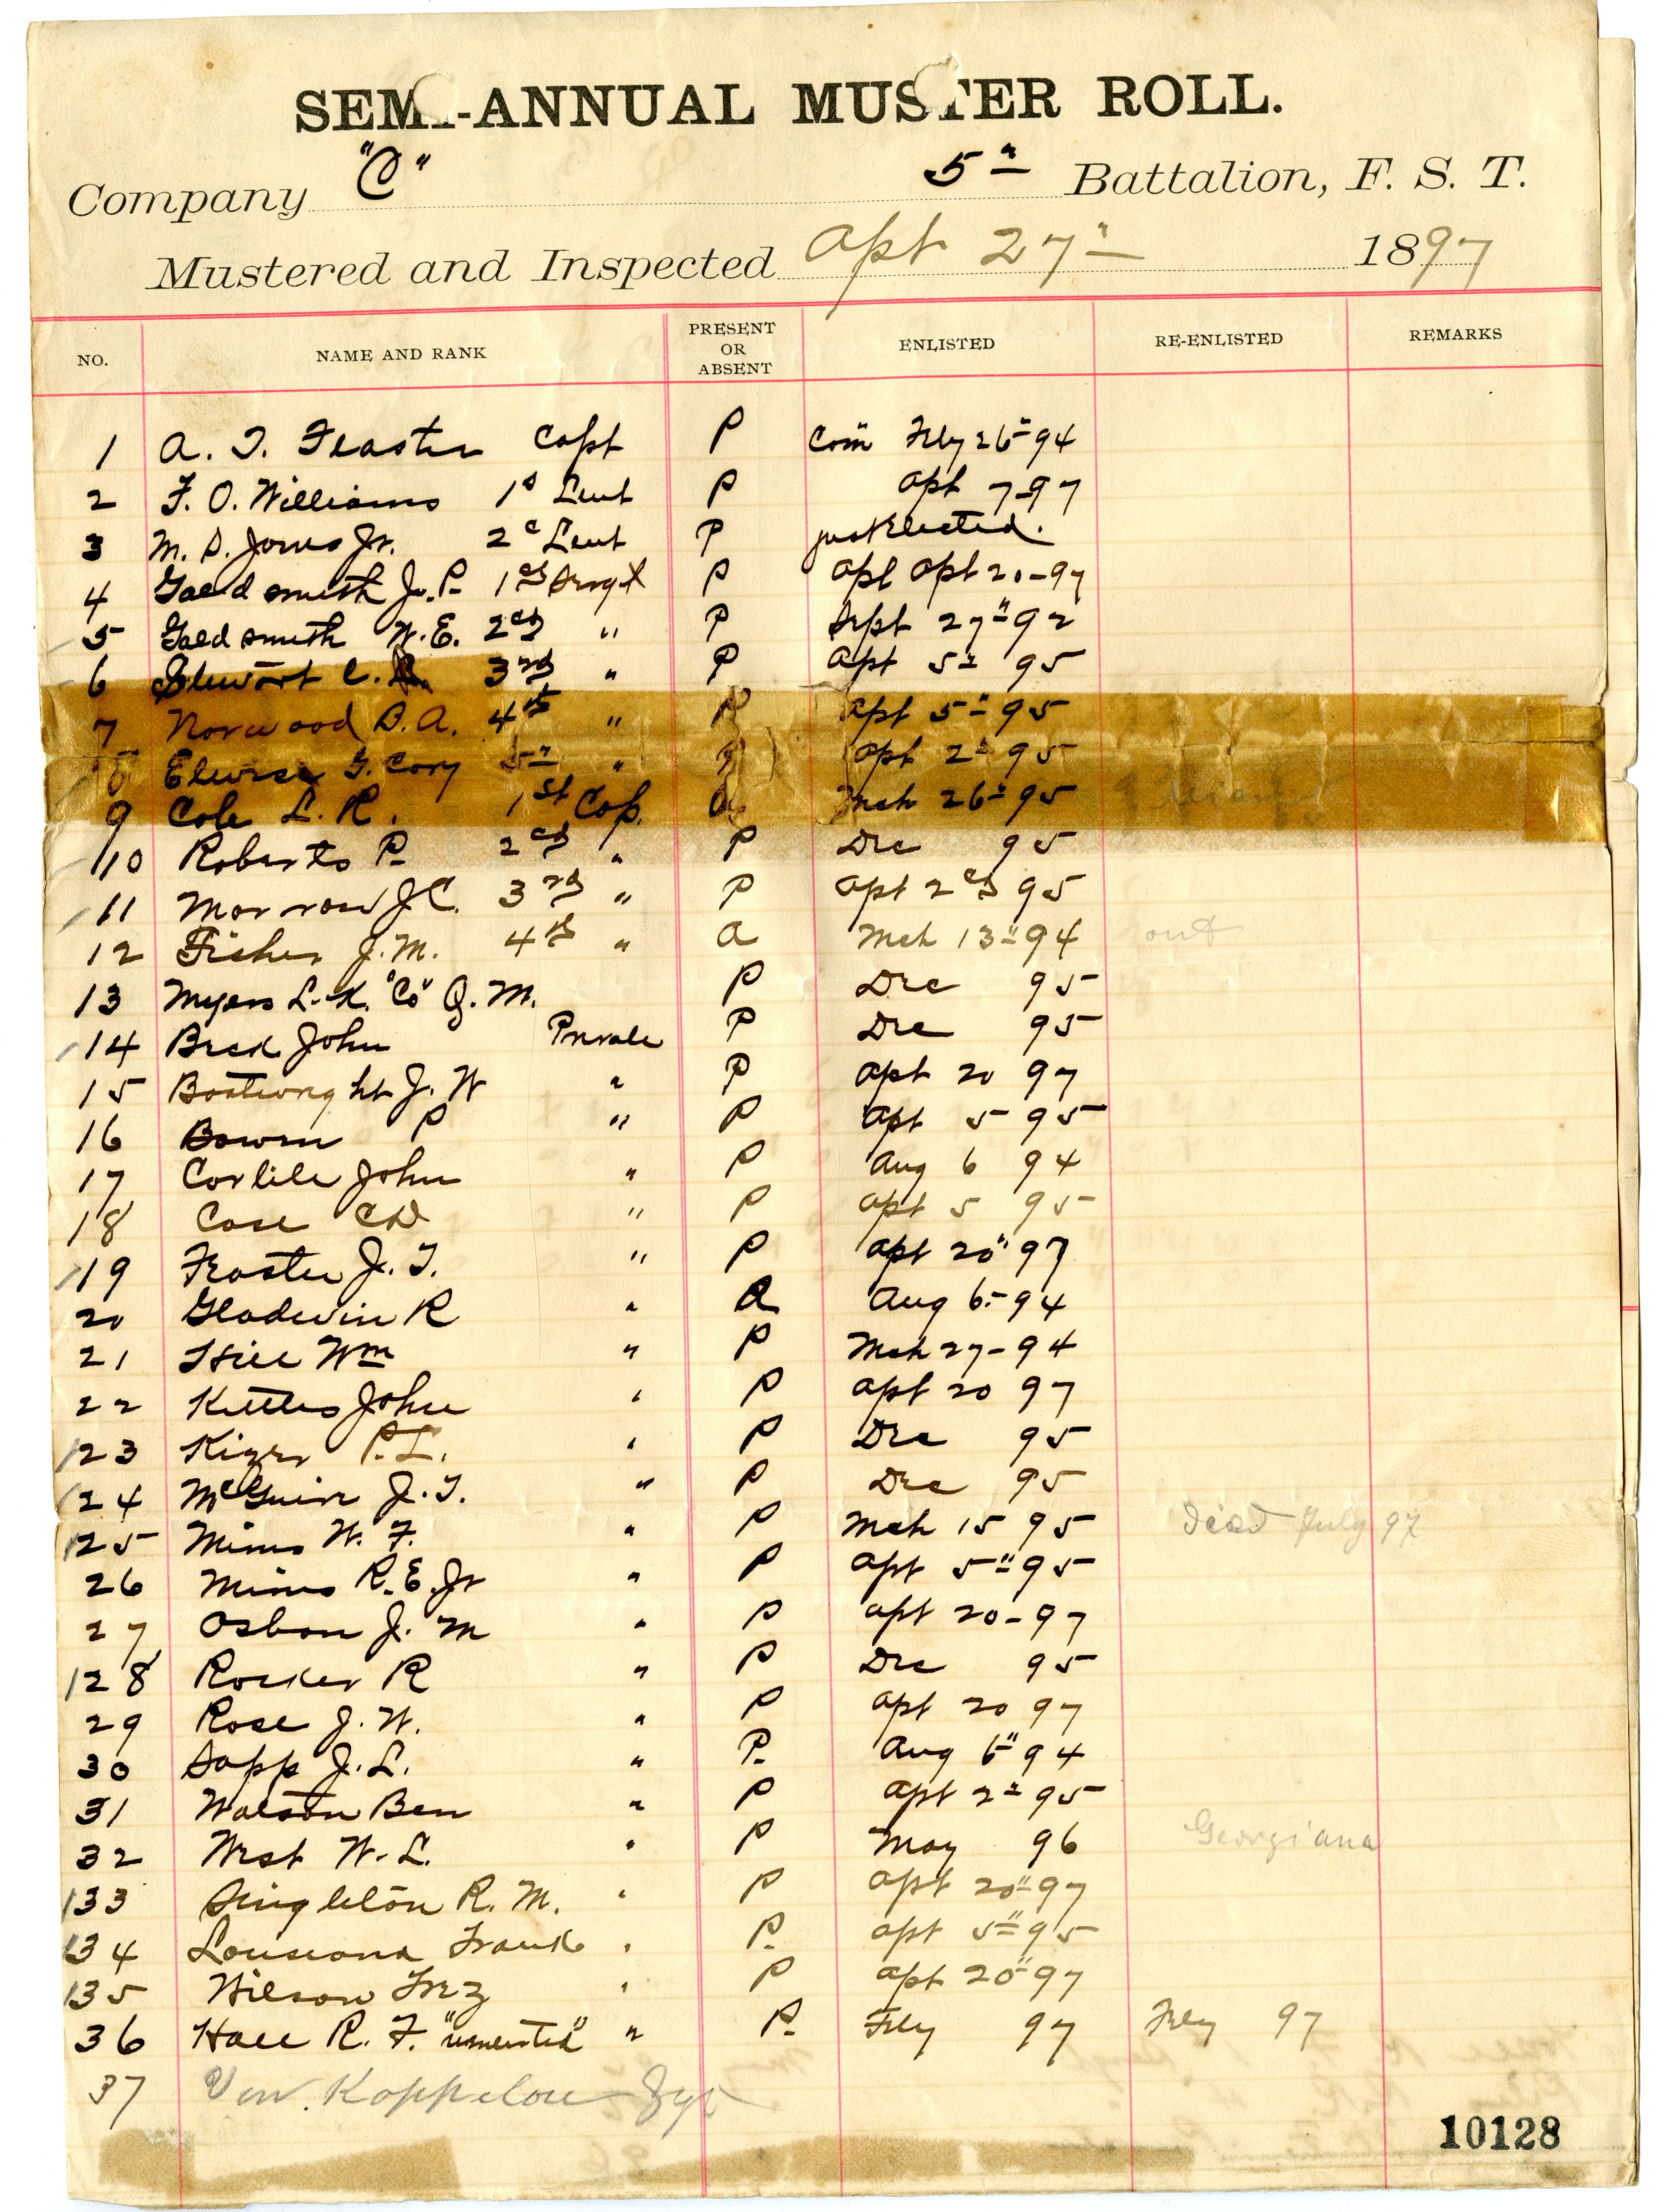 SEMI-ANNUAL MUSTER ROLL.
Company "C" 5" Battalion, F. S. T.
Mustered and Inspected Apl 27" 1897
NO. NAME AND RANK PRESENT OR ABSENT ENLISTED RE-ENLISTED REMARKS
1 A. T. Feaster Capt P Com Feby 26" 94
2 F. O. Williams 1s Leut P Apl 7-97
3 M. D. Jones Jr. 2d Leut P just Elected.
4 Goldsmith J. P. 1st Srngt P Apl Apl 20-97
5 Goldsmith W. E. 2nd " P Sept 27" 92
6 Stewart C. 3rd " P Apl 5" 95
7 Norwood D. A. 4th " P Apl 5" 95
8 G. Cory 5" " Apl 2" 95
9 Cole L. R. 1st Cop. Mch 26" 95
10 Roberts P 2nd " P Dec 95
11 Morrow J C. 3rd " P Apl 2nd 95
12 Fisher J. M. 4th " a Mch 13" 94 out
13 Myers L. K. "Co" Q. M. P Dec 95
14 Beck John Private P Dec 95
15 Boatwright J. W " P Apl 20 97
16 Bowen P " P Apl 5 95
17 Corlile John " P Aug 6 94
18 Case C D " P Apl 5 95
19 Feaster J. T. " P Apl 20" 97
20 Gladwin R " a Aug 6-94
21 Hill Wm " P Mch 27-94
22 Kettles John " P Apl 20 97
23 Kizer P. L. " P Dec 95
24 McGuire J. T. " P Dec 95
25 Mims W. F. " P Mch 15 95 Died July 97
26 Mims R. E. Jr " P Apl 5" 95
27 Osbon J. M " P Apl 20-97
28 Rocker R " P Dec 95
29 Rose J. W. " P Apl 20 97
30 Sapp J. L. " P. Aug 6" 94
31 Watson Ben " P Apl 2" 95
32 West W. L. " P May 96 Georgiana
33 Singleton R. M. " P Apl 20" 97
34 Lousiana Frank " P. Apl 5" 95
35 Wilson Frez " P Apl 20" 97
36 Hall R. F. " P. Feby 97 Feby 97
37 Von. Koppelow
10128